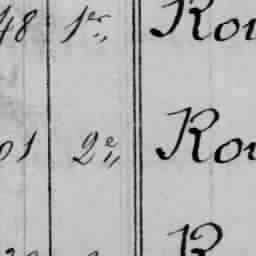 48 1er „ Rou
01 2e „ Rou
R